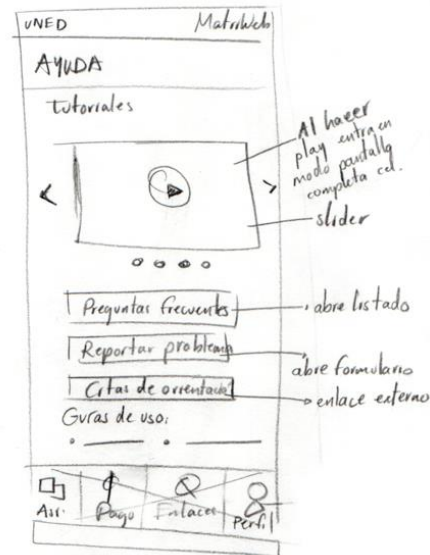 UNED MatriWeb
AYUDA
Tutoriales
Al hacer
play entra en
modo pantalla
completa cel.
slider
Preguntas frecuentes
abre listado
Reportar problema
abre formulario
Citas de orientación
enlace externo
Guías de uso:
Asi. Pago Enlaces Perfil